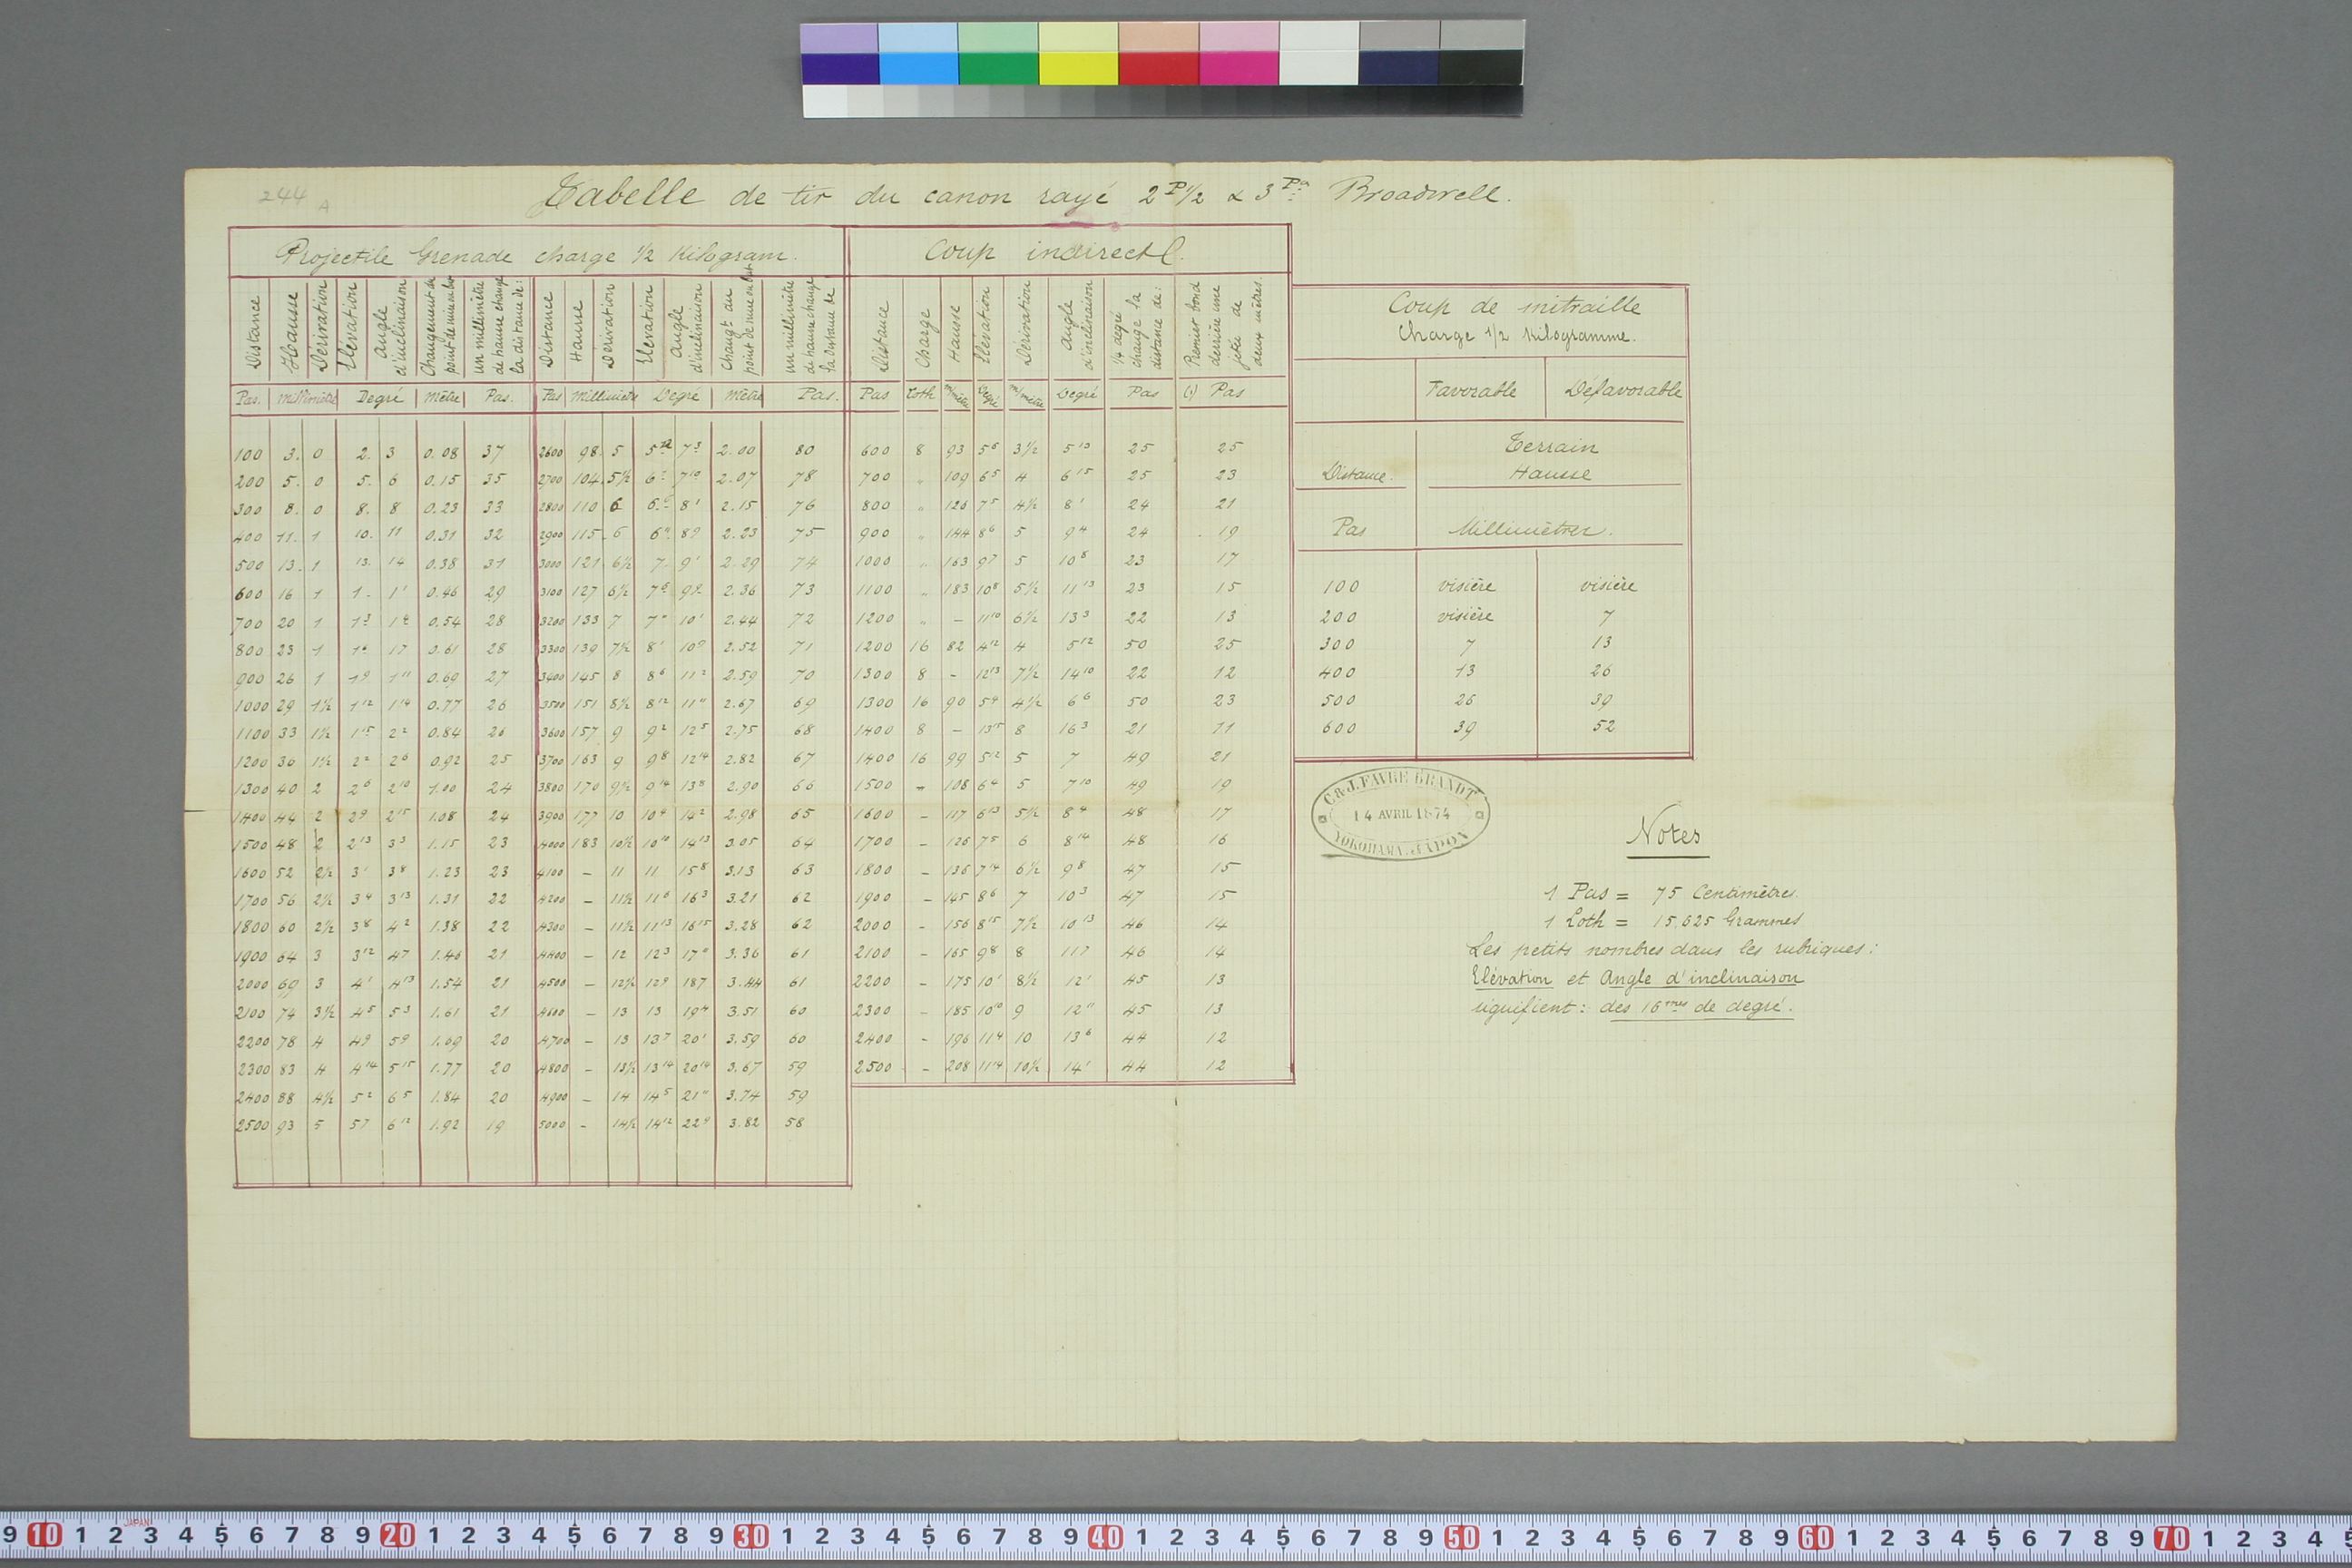 244 A
Tabelle de tir du canon rayé 2 P 1/2 & 3 Pr Broadwell.
Projectile Grenade charge 1/2 Kilogram.
Distance Hausse Dérivation Elévation Angle d'inclinaison Changement du point de mire en but un millimètre de hausse change la distance de:
Distance Hausse Dérivation Elévation Angle d'inclinaison Changt au point de mire en but un millimètre de hausse change la distance de
Pas. Millimètre Degré Mètre Pas. Pas Millimètre Degré Mètre Pas.
100 3. 0 2. 3 0.08 37 2600 98 5 7³ 2.00 80
200 5. 0 5. 6 0.15 35 2700 104 5½ 7¹⁰ 2.07 78
300 8. 0 8. 8 0.23 33 2800 110 6 8¹ 2.15 76
400 11. 1 10. 11 0.31 32 2900 115 6 8⁹ 2.23 75
500 13. 1 13. 14 0.38 31 3000 121 6½ 7 9¹ 2.29 74
600 16 1 1. 1¹ 0.46 29 3100 127 6½ 2.36 73
700 20 1 1³ 0.54 28 3200 133 7 10¹ 2.44 72
800 23 1 1⁷ 0.61 28 3300 139 7½ 8¹ 10⁹ 2.52 71
900 26 1 1⁹ 1¹¹ 0.69 27 3400 145 8 8⁶ 11² 2.59 70
1000 29 1½ 1¹² 1¹⁴ 0.77 26 3500 151 8½ 8¹² 11¹¹ 2.67 69
1100 33 1½ 1¹⁵ 2² 0.84 26 3600 157 9 9² 12⁵ 2.75 68
1200 36 1½ 2² 2⁶ 0.92 25 3700 163 9 9⁸ 12¹⁴ 2.82 67
1300 40 2 2⁶ 2¹⁰ 1.00 24 3800 170 9½ 9¹⁴ 13⁸ 2.90 66
1400 44 2 2⁹ 2¹⁵ 1.08 24 3900 177 10 10⁴ 14² 2.98 65
1500 48 2 2¹³ 3³ 1.15 23 4000 183 10½ 10¹⁰ 14¹³ 3.05 64
1600 52 2½ 3¹ 3⁸ 1.23 23 4100 – 11 11 15⁸ 3.13 63
1700 56 2½ 3⁴ 3¹³ 1.31 22 4200 – 11½ 11⁶ 16³ 3.21 62
1800 60 2½ 3⁸ 4² 1.38 22 4300 – 11½ 11¹³ 16¹⁵ 3.28 62
1900 64 3 3¹² 4⁷ 1.46 21 4400 – 12 12³ 3.36 61
2000 69 3 4¹ 4¹³ 1.54 21 4500 – 12½ 12⁹ 18⁷ 3.44 61
2100 74 3½ 4⁵ 5³ 1.61 21 4600 – 13 13 19⁴ 3.51 60
2200 78 4 4⁹ 5⁹ 1.69 20 4700 – 13 13⁷ 20¹ 3.59 60
2300 83 4 4¹⁴ 5¹⁵ 1.77 20 4800 – 13½ 13¹⁴ 20¹⁴ 3.67 59
2400 88 4½ 5² 6⁵ 1.84 20 4900 – 14 14⁵ 21¹¹ 3.74 59
2500 93 5 5⁷ 6¹² 1.92 19 5000 – 14½ 14¹² 22⁹ 3.82 58
Coup indirect
Distance Charge Hausse Elévation Dérivation Angle d'inclinaison ¼ degré change la distance de: Premier bond derrière une jetée de deux mètres.
Pas Loth m/mètre Degré m/mètre Degré Pas (1) Pas
600 8 93 5⁶ 3½ 5¹³ 25 25
700 " 109 6⁵ 4 6¹⁵ 25 23
800 " 126 7⁵ 4½ 8¹ 24 21
900 " 144 8⁶ 5 9⁴ 24 19
1000 " 163 9⁷ 5 10⁸ 23 17
1100 " 183 10⁸ 5½ 11¹³ 23 15
1200 " – 11¹⁰ 6½ 13³ 22 13
1200 16 82 4¹² 4 5¹² 50 25
1300 8 – 12¹³ 7½ 14¹⁰ 22 12
1300 16 90 5⁴ 4½ 6⁶ 50 23
1400 8 – 13¹⁵ 8 16³ 21 11
1400 16 99 5¹² 5 7 49 21
1500 – 108 6⁴ 5 7¹⁰ 49 19
1600 – 117 6¹³ 5½ 8⁴ 48 17
1700 – 126 7⁵ 6 8¹⁴ 48 16
1800 – 136 7¹⁴ 6½ 9⁸ 47 15
1900 – 145 8⁶ 7 10³ 47 15
2000 – 156 8¹⁵ 7½ 10¹³ 46 14
2100 – 165 9⁸ 8 11⁷ 46 14
2200 – 175 10¹ 8½ 12¹ 45 13
2300 – 185 10¹⁰ 9 12¹¹ 45 13
2400 – 196 11⁴ 10 13⁶ 44 12
2500 – 208 11¹⁴ 10½ 14¹ 44 12
Coup de mitraille
Charge 1/2 Kilogramme.
Favorable Défavorable
Terrain
Distance. Hausse
Pas Millimètres.
100 visière visière
200 visière 7
300 7 13
400 13 26
500 26 39
600 39 52
C. & J. FAVRE BRANDT
14 AVRIL 1874
YOKOHAMA. JAPON
Notes
1 Pas = 75 Centimètres.
1 Loth = 15,625 Grammes
Les petits nombres dans les rubriques:
Elévation et Angle d'inclinaison
signifient: des 16mes de degré.
9 10 1 2 3 4 5 6 7 8 9 20 1 2 3 4 5 6 7 8 9 30 1 2 3 4 5 6 7 8 9 40 1 2 3 4 5 6 7 8 9 50 1 2 3 4 5 6 7 8 9 60 1 2 3 4 5 6 7 8 9 70 1 2 3 4
JAPAN